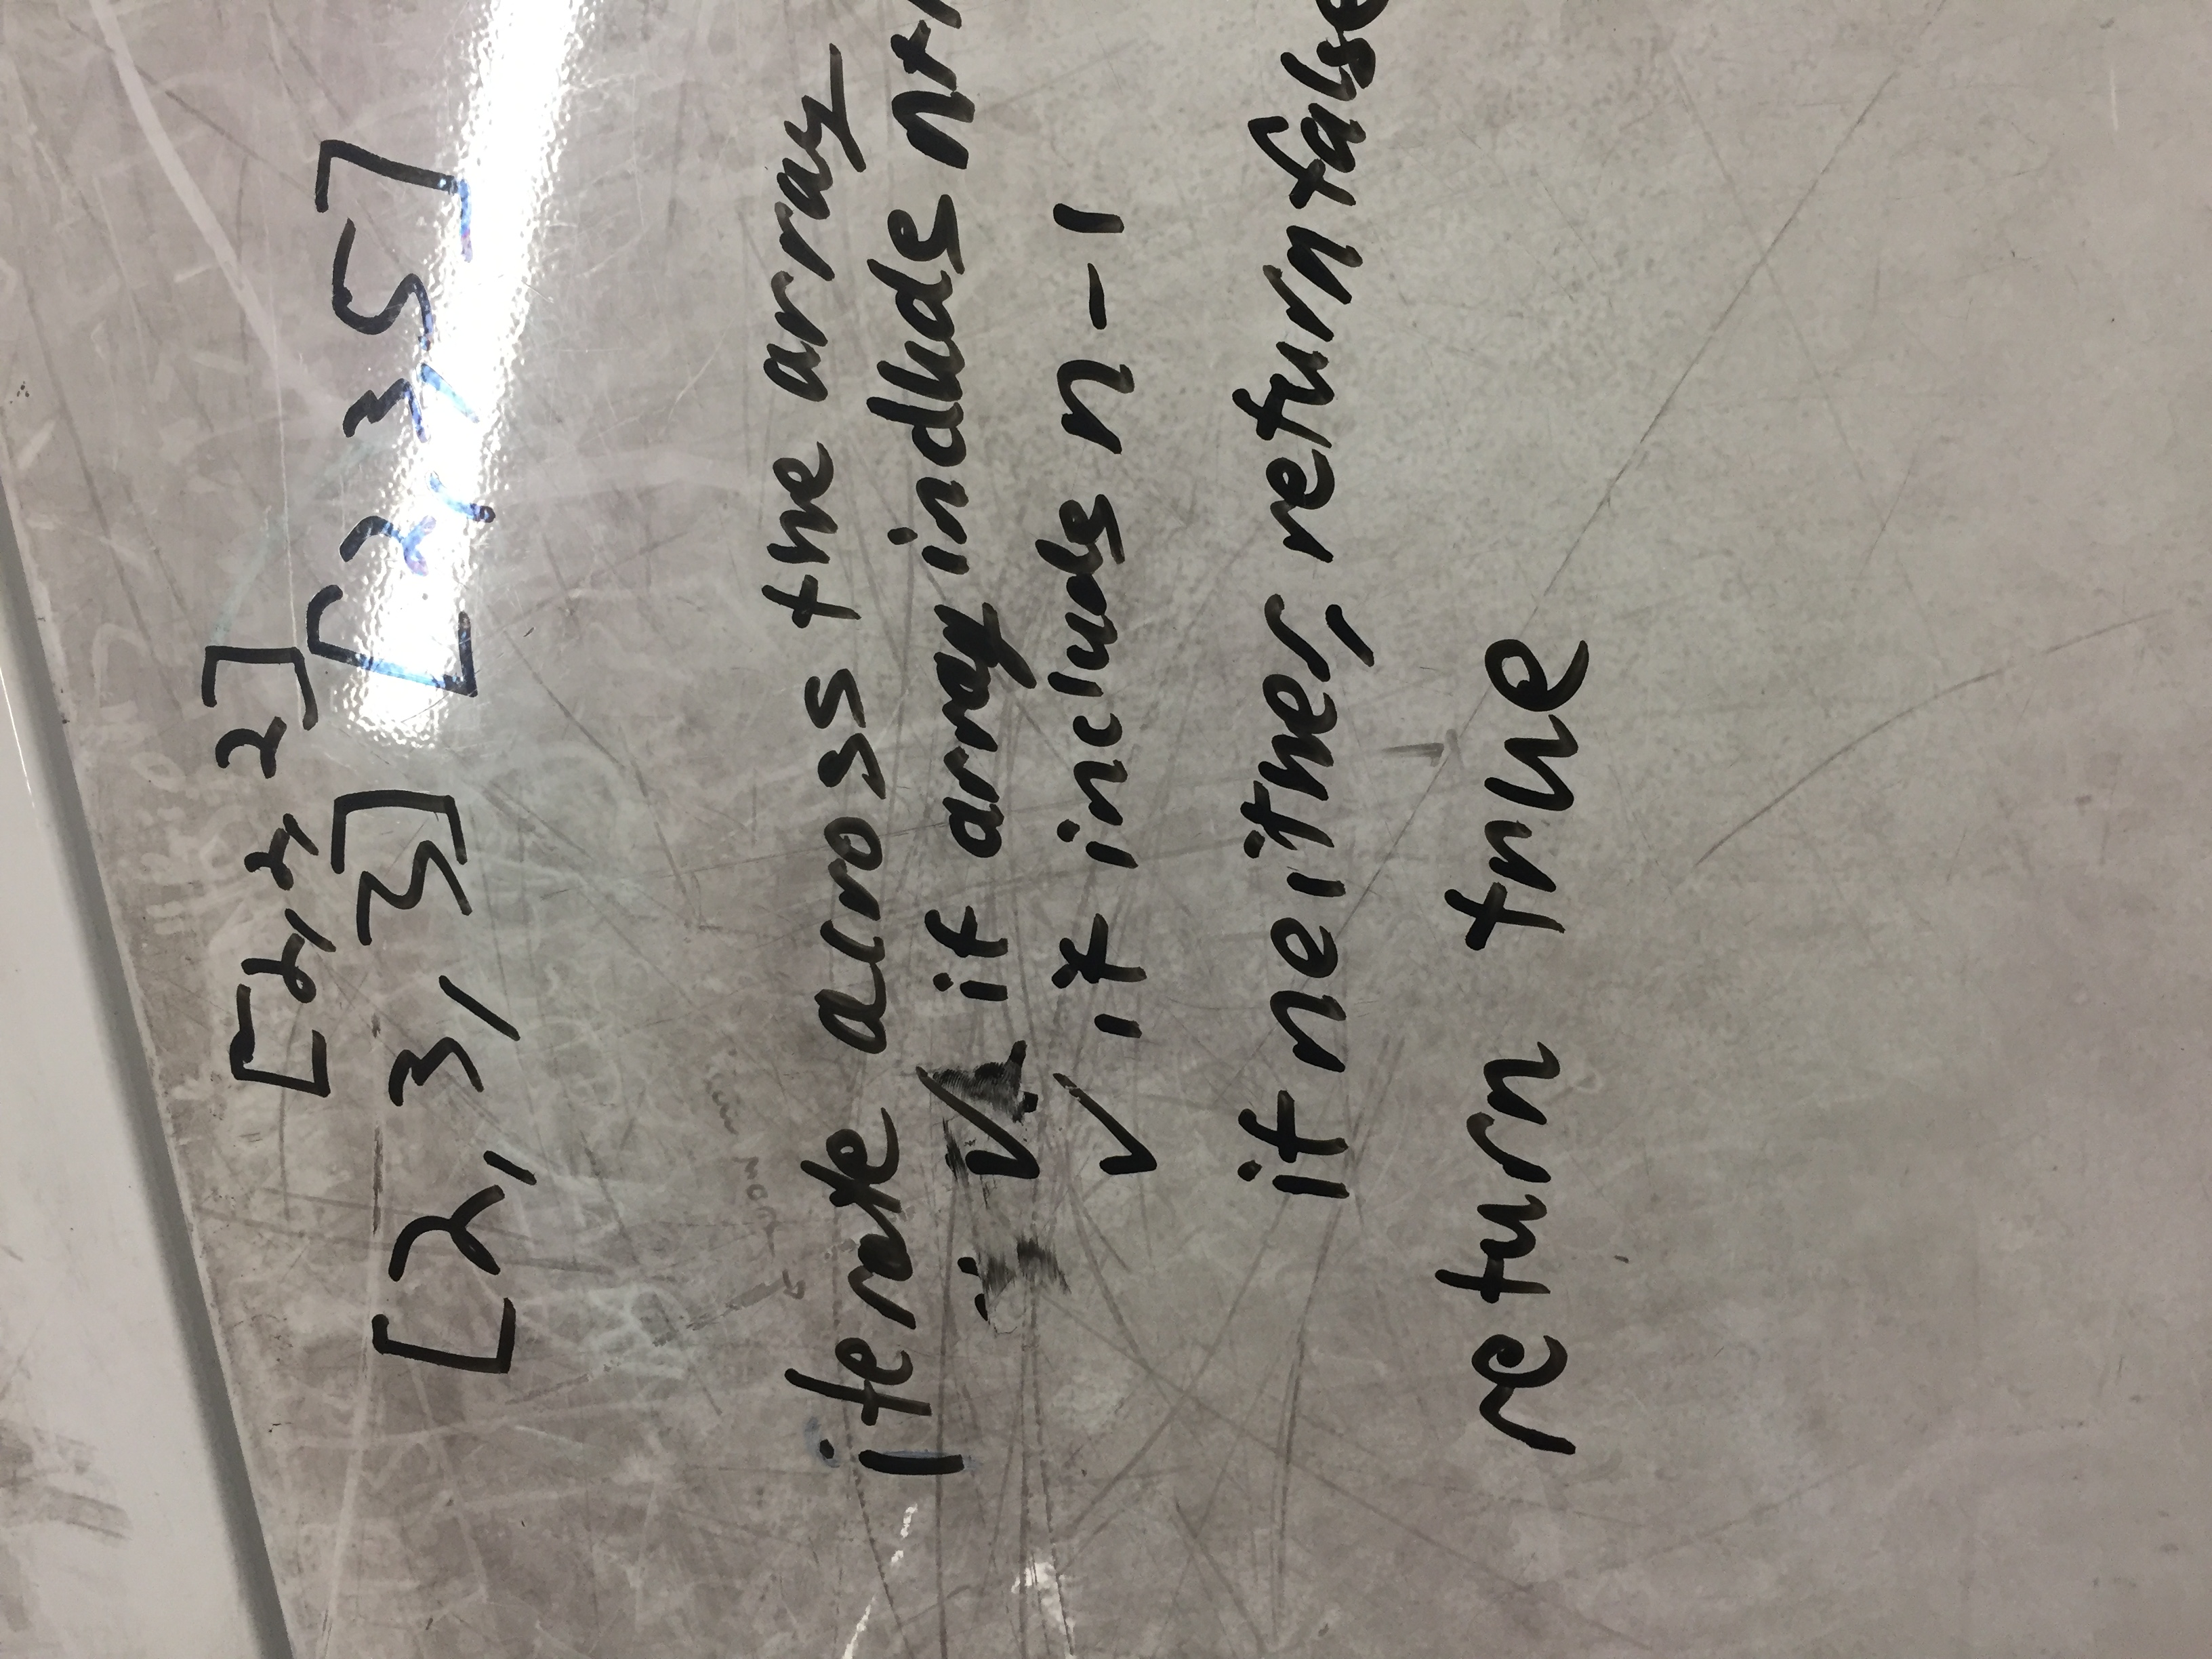 [2, 2, 2]
[2, 3, 3] [2, 3, 5]
iterate across the array
✓ if array includes n+1
✓ if includes n-1
if neither, return false
return true